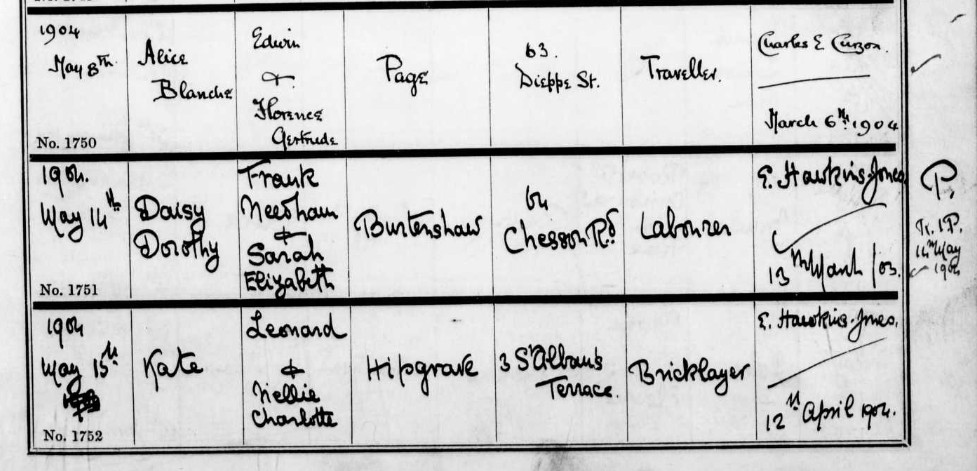 1904
May 8th
Alice
Blanche
Edwin
&
Florence
Gertrude
Page
63
Dieppe St.
Traveller.
Charles E Curzon.
March 6th 1904
No. 1750
1904.
May 14th
Daisy
Dorothy
Frank
Needham
&
Sarah
Elizabeth
Burtenshaw
64
Chesson Rd
Labourer
E. Hawkins-Jones
13th March /03.
P.
14th May
1904
No. 1751
1904
May 15th
Kate
Leonard
&
Nellie
Charlotte
Hipgrave
3 St Albans
Terrace.
Bricklayer
E. Hawkins-Jones.
12th April 1904.
No. 1752